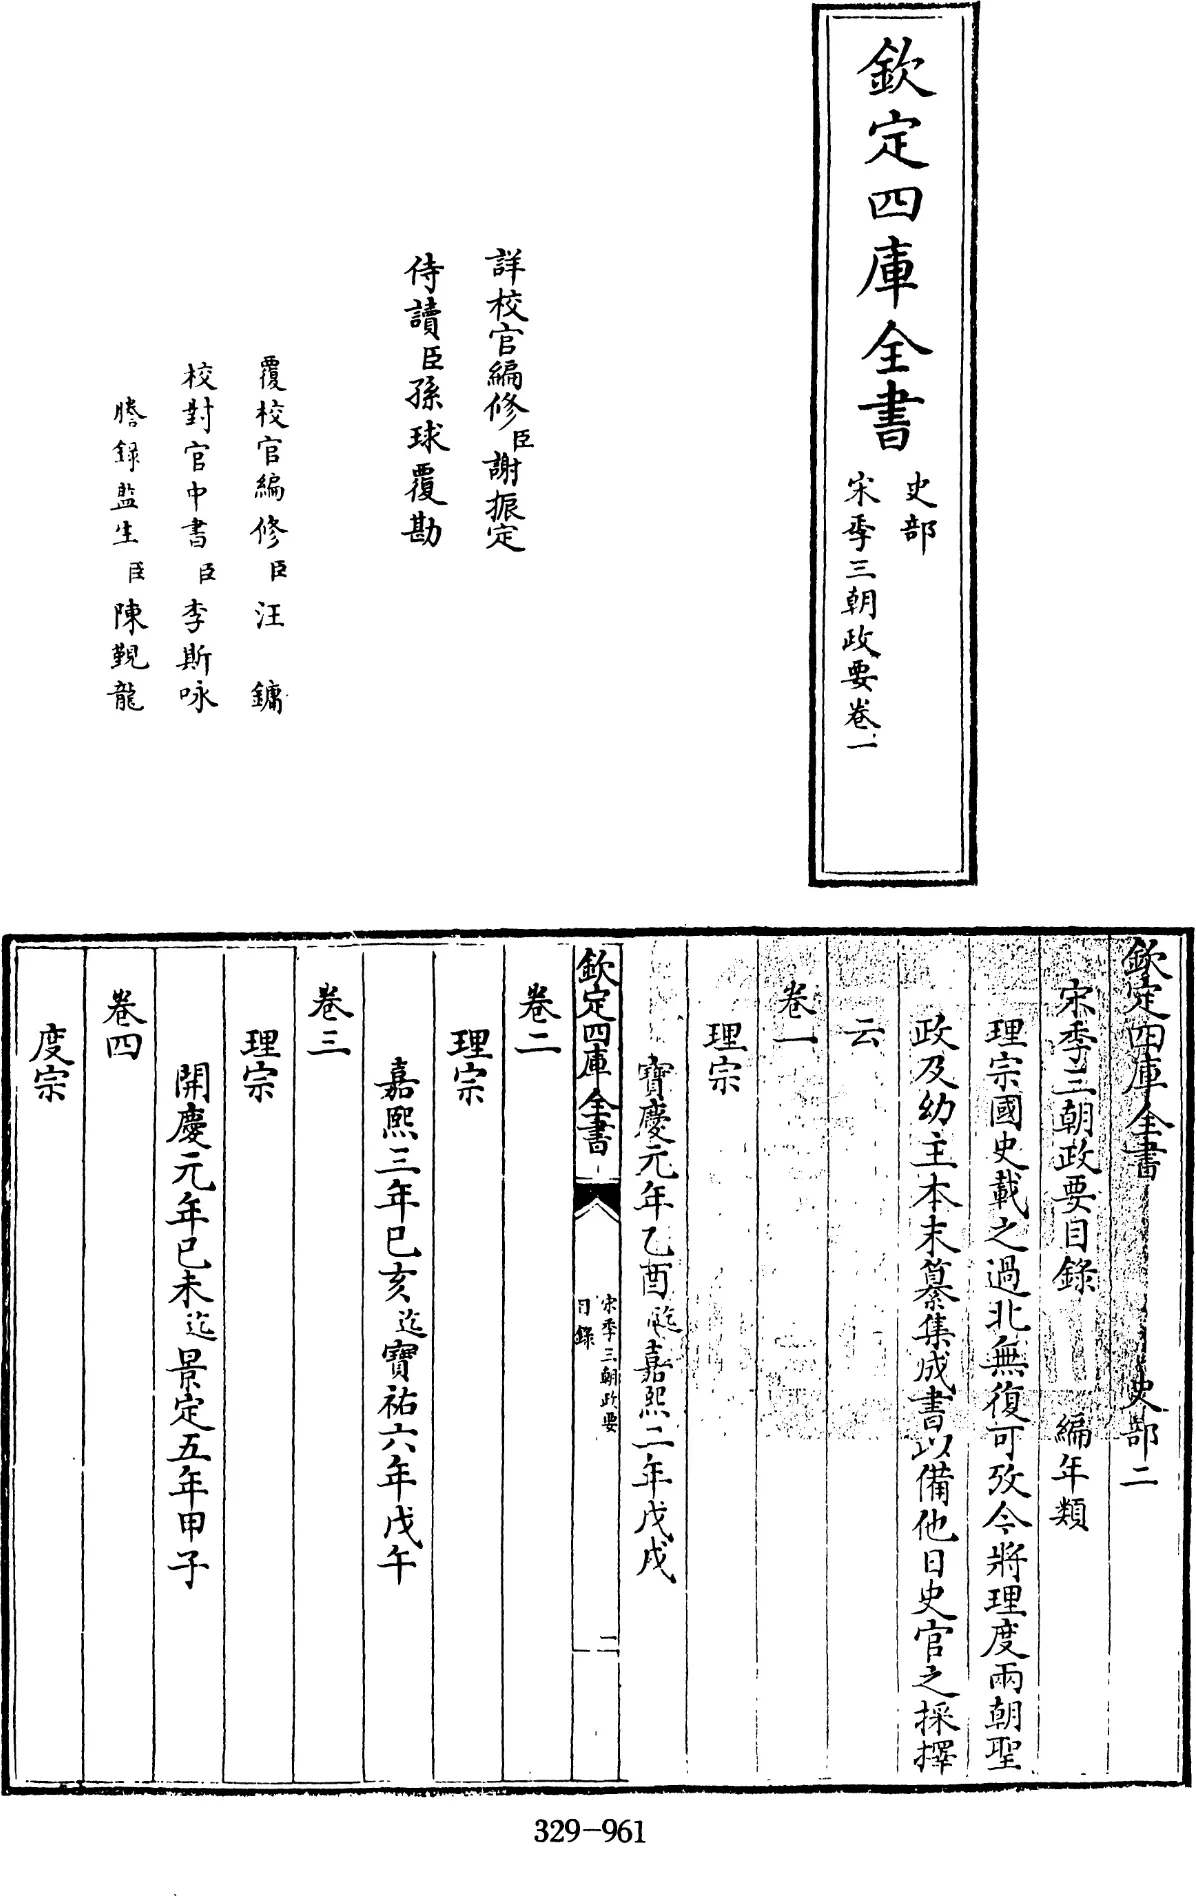 欽定四庫全書
史部
宋季三朝政要卷一
詳校官編修臣謝振定
侍讀臣孫球覆勘
覆校官編修臣汪鏞
校對官中書臣李斯咏
謄錄監生臣陳覲龍
欽定四庫全書 史部二
宋季三朝政要目錄 編年類
理宗國史載之過北無復可攷今將理度兩朝聖
政及幼主本末纂集成書以備他日史官之採擇
云
卷一
理宗
寶慶元年乙酉迄嘉熙二年戊戌
欽定四庫全書
宋季三朝政要
目錄
一
卷二
理宗
嘉熙三年已亥迄寶祐六年戊午
卷三
理宗
開慶元年已未迄景定五年甲子
卷四
度宗
329-961